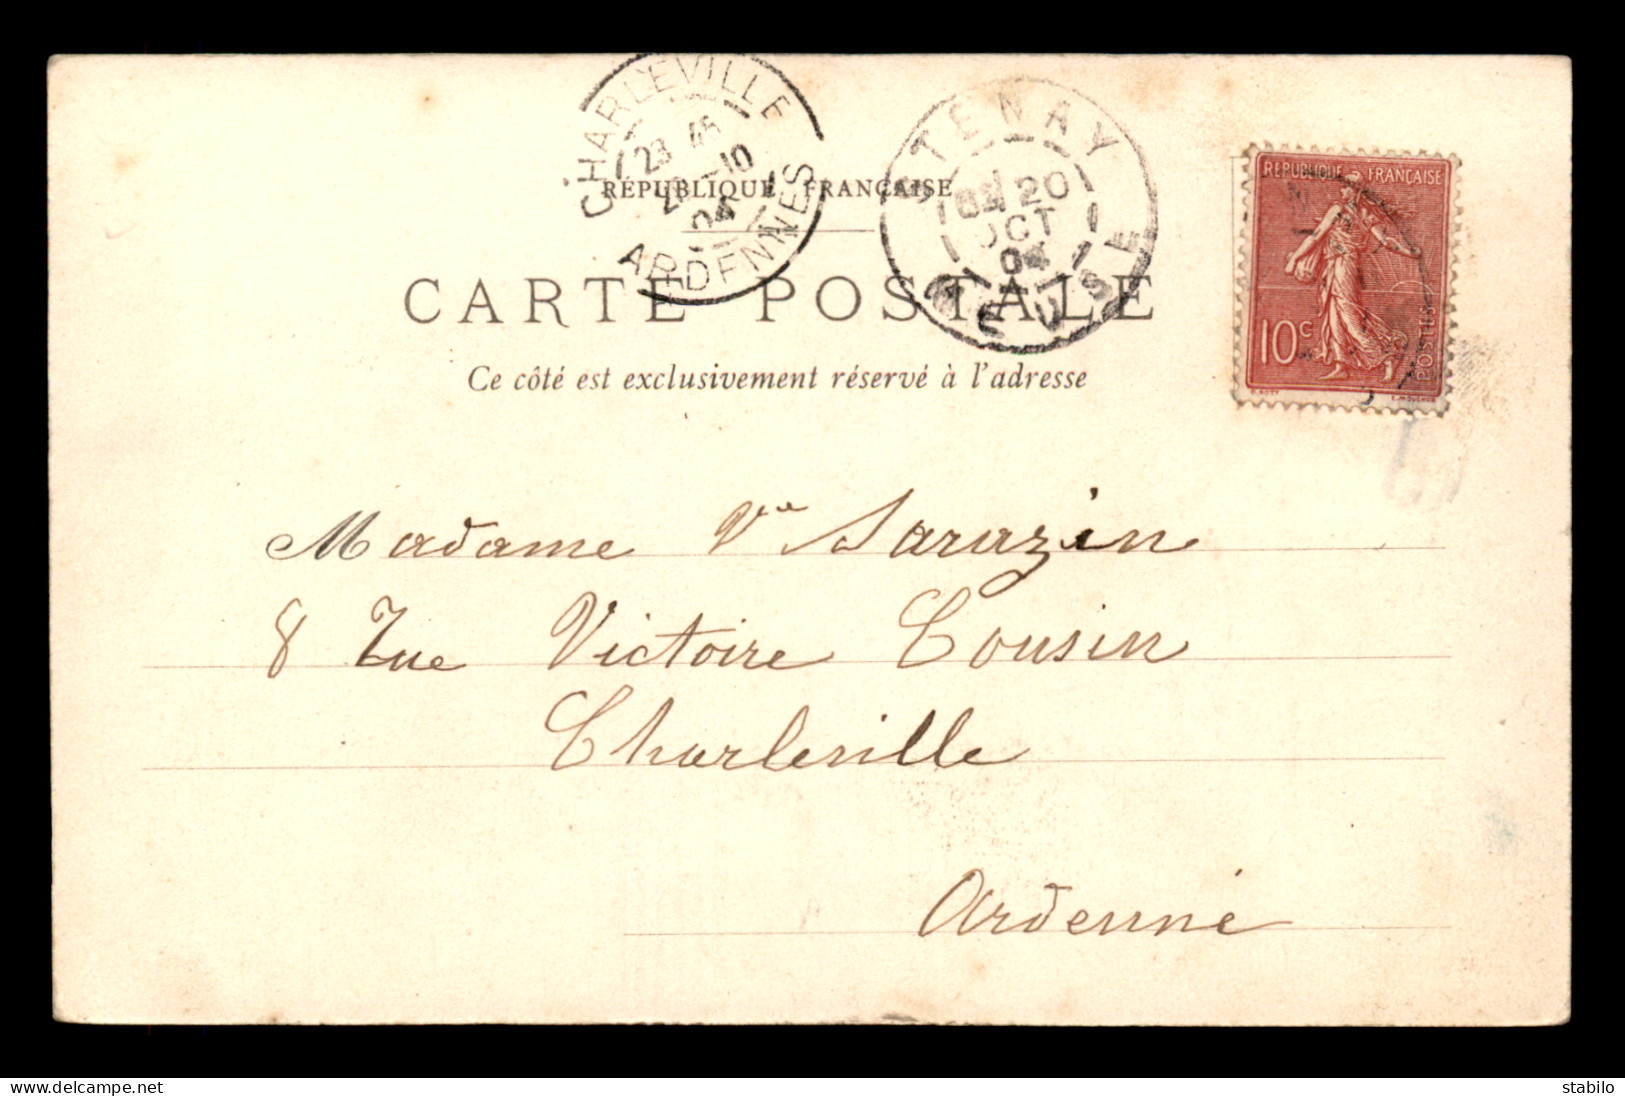 CHARLEVILLE
23 45
-10
04
ARDENNES
STENAY
20
OCT
04
MEUSE
RÉPUBLIQUE FRANÇAISE
10c
POSTES
O.ROTY
E.MOUCHON
RÉPUBLIQUE FRANÇAISE
CARTE POSTALE
Ce côté est exclusivement réservé à l'adresse
Madame Vve Sarazin
8 Rue Victoire Cousin
Charleville
Ardenne
delcampe.net
stabilo